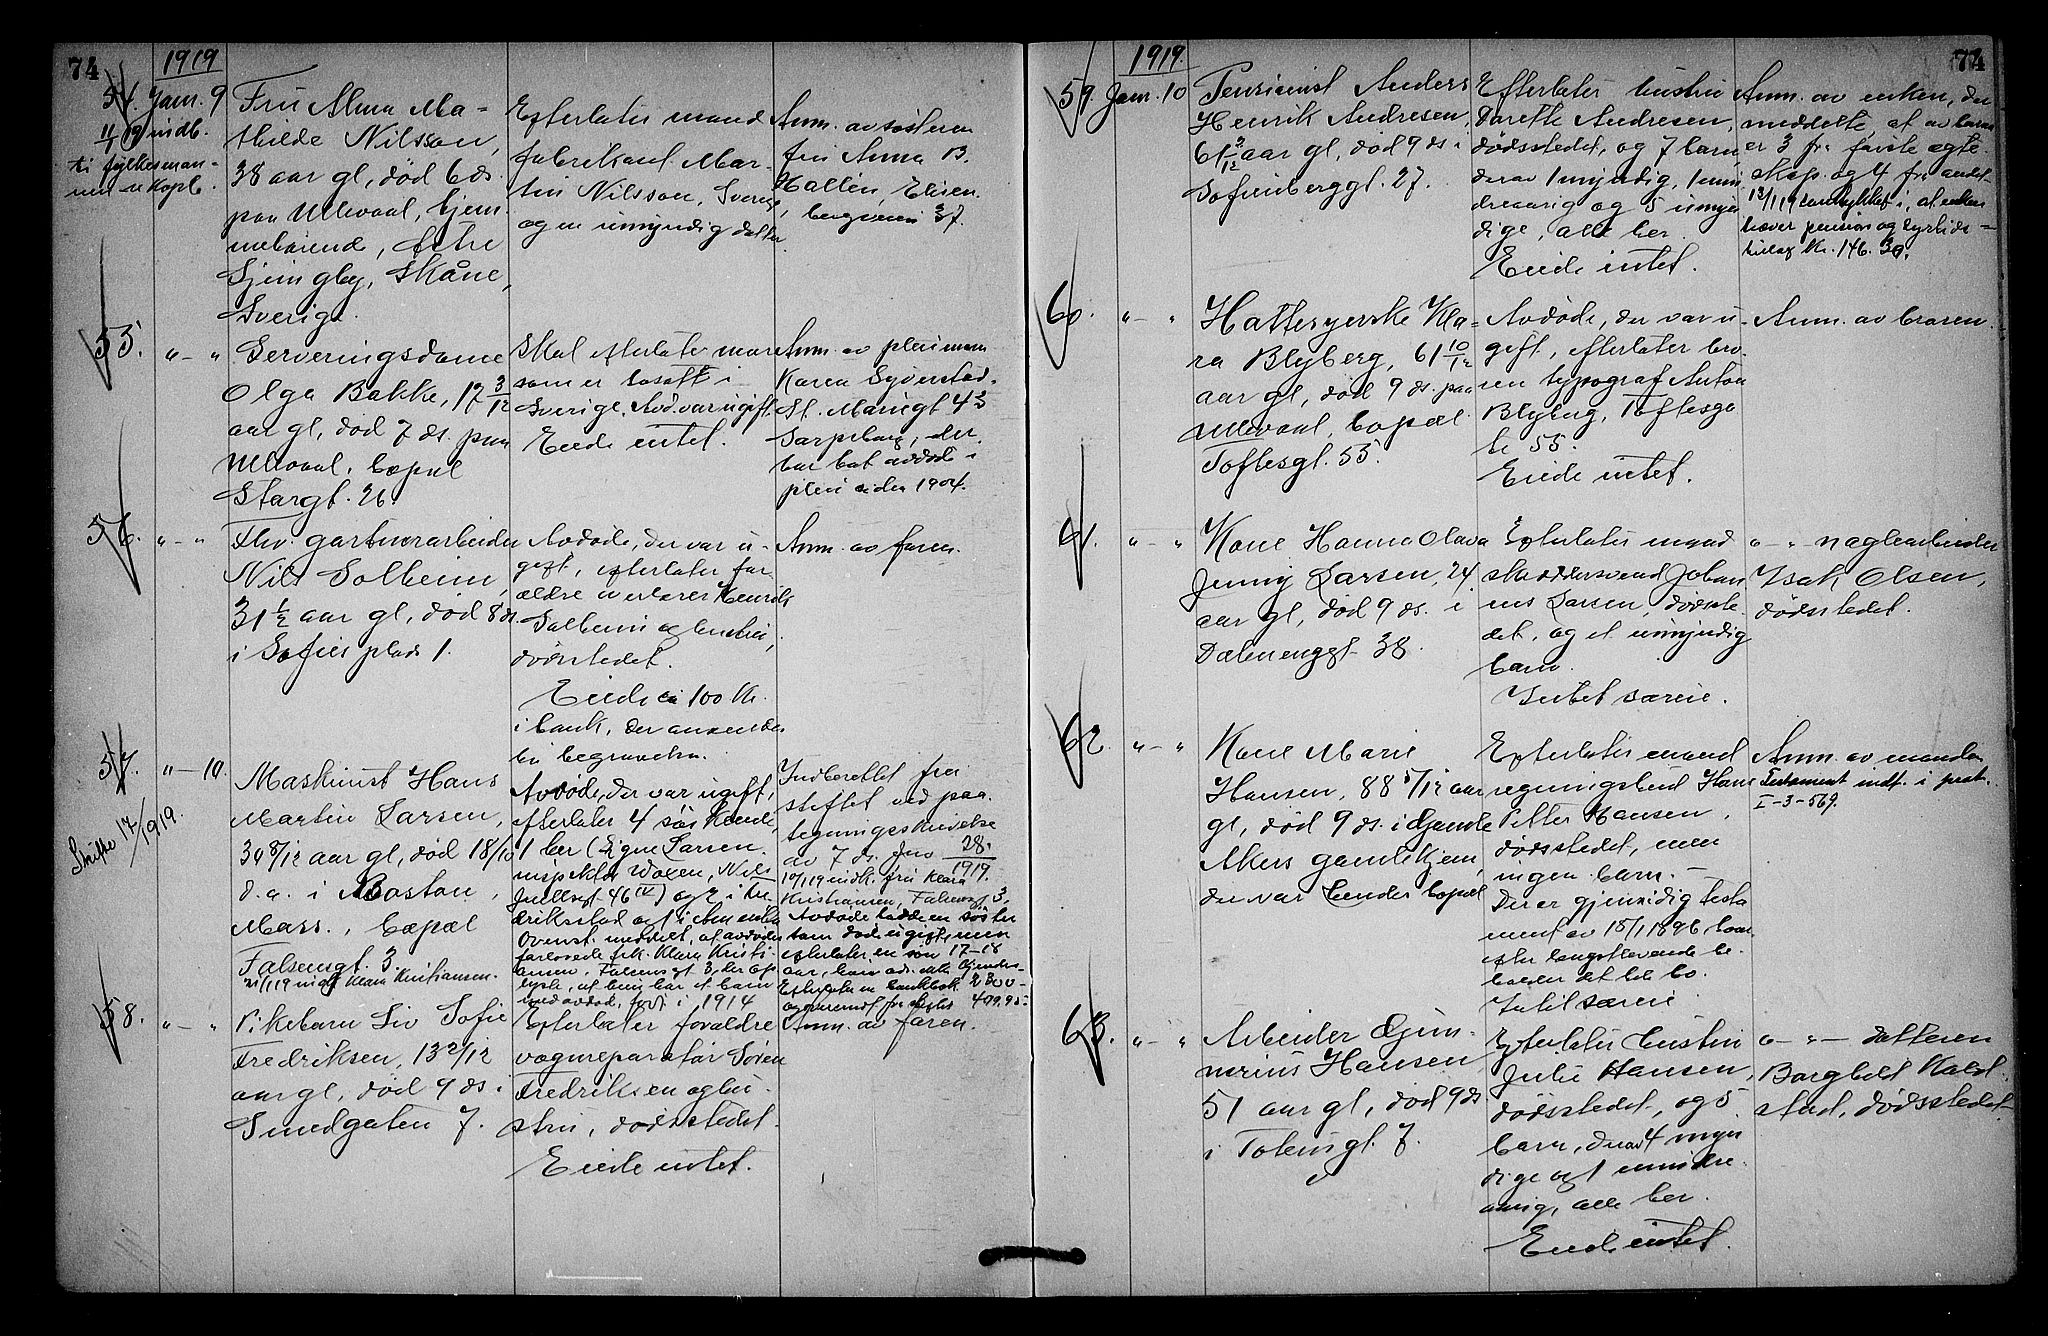 74
1919
54. Jan. 9
indb.
til fylkesman-
nen
Fru Alma Ma-
thilde Nilsson,
38 aar gl, død 6 ds.
paa Ullevaal, hjem-
mehørende,
Skåne,
Sverige.
Efterlater mand
fabrikant Mar-
tin Nilsson, Sverige
og en umyndig datter.
Anm. av søsteren
fru Anna B.
Hallén, Elisen-
bergveien 37.
55. " - "
Serveringsdame
Olga Bakke, 17 3/12
aar gl, død 7 ds. paa
Ullevaal, bopæl
Storgt. 26.
Skal efterlate mor
som er bosatt i
Sverige. Avd. var ugift.
Eiede intet.
Anm. av pleiemor
Karen
St. Mariegt 43
Sarpsborg, der
har hat avdøde i
pleie siden 1904.
56. " - "
Fhv. gartnerarbeider
Nils Solheim,
31 1/2 aar gl, død 8 ds.
i Sofies plads 1.
Avdøde, der var u-
gift, efterlater for-
ældre Henrik
Solheim og hustru,
dødsstedet.
Eiede ca 100 Kr.
i bank, der anvendes
til begravelse.
Anm. av faren.
57. " - 10.
Skifte 17/1919.
Maskinist Hans
Martin Larsen,
39 8/12 aar gl, død 18/10
d.a. i Boston,
Mass., bopæl
Falsensgt. 3
21/1 19 indf Klara Kristiansen.
Avdøde, der var ugift,
efterlater 4 søskende,
1 her (Signe Larsen.
Nils
Juelsgt. 46 IV) og 2 i Fre-
driksstad og 1 i Amerika
Ovenst. meddelt, at avdødes
forlovede frk. Klara Kristi-
ansen, Falsensgt 3, her op-
lyste, at hun har et barn
med avdøde, født i 1914
Indberettet fra
skiftet ved paa-
tegningsskrivelse
av 7 ds. Jno 28.
1919.
10/1 19 indk. fru Klara
Kristiansen, Falsensgt 3.
Avdøde hadde en søster
som døde ugift, men
efterlater en søn 17-18
aar,
Efterlot en bankbok 2300 -
499.95.
58. " - "
Pikebarn Liv Sofie
Fredriksen, 13 2/12
aar gl, død 9 ds i
Smedgaten 7.
Efterlater forældre
vognreparatør Søren
Fredriksen og hu-
stru, dødsstedet.
Eiede intet.
Anm. av faren.
74
1919.
59. Jan. 10
Pensionist Anders
Henrik Andresen,
61 3/12 aar gl, død 9 ds i
Sofienberggt. 27.
Efterlater hustru
Dorethe Andresen,
dødsstedet, og 7 barn,
derav 1 myndig, 1 min-
dreaarig og 5 umyn-
dige, alle her.
Eiede intet.
Anm. av enken, der
meddelte, at av barna
er 3 fra første egte-
skap og 4 fra andet
13/1 19 samtykket i, at enken
hæver pension og dyrtids-
tillæg Kr. 146.30.
60. " - "
Hattesyerske Kla-
ra Blyberg, 61 10/12
aar gl, død 9 ds. paa
Ullevaal, bopæl
Toftesgt. 55.
Avdøde, der var u-
gift, efterlater bro-
ren typograf Anton
Blyberg, Toftesga-
te 55.
Eiede intet.
Anm. av broren.
61. " - "
Kone Hanna Olava
Jenny Larsen, 24
aar gl, død 9 ds. i
Dælenenggt. 38.
Efterlater mand
skreddersvend Johan-
nes Larsen, dødsste-
det, og et umyndig
barn.
Intet særeie.
" - " naglearbeider
Isak Olsen,
dødsstedet.
62. " - "
Kone Marie
Hansen, 88 5/12 aar
gl, død 9 ds. i Gamle
Akers gamlehjem,
der var hendes bopæl
Efterlater mand
regningsbud Hans
Petter Hansen,
dødsstedet, men
ingen barn. -
Der er gjensidig testa-
ment av 15/1 1896, hvor-
efter længstlevende be-
holder det hele bo.
Intet særeie.
Anm. av manden
Testament indt. i prot.
I-3-569.
63. " - "
Arbeider Gun-
nerius Hansen
51 aar gl, død 9 ds
i Totensgt. 7.
Efterlater hustru
Julie Hansen,
dødsstedet, og 5
barn, derav 4 myn-
dige og 1 mindre-
aarig, alle her.
Eiede intet.
" - " - datteren
Borghild Kald-
stad, dødsstedet